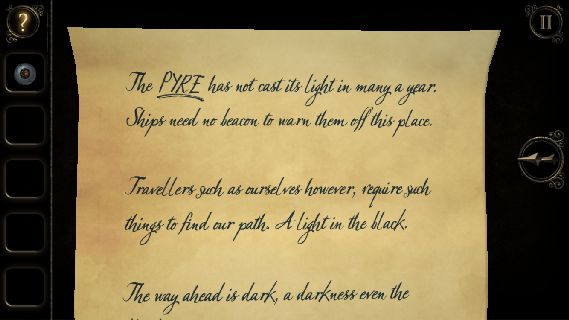 ?
The PYRE has not cast its light in many a year.
Ships need no beacon to warn them off this place.
Travellers such as ourselves however, require such
things to find our path. A light in the black.
The way ahead is dark, a darkness even the